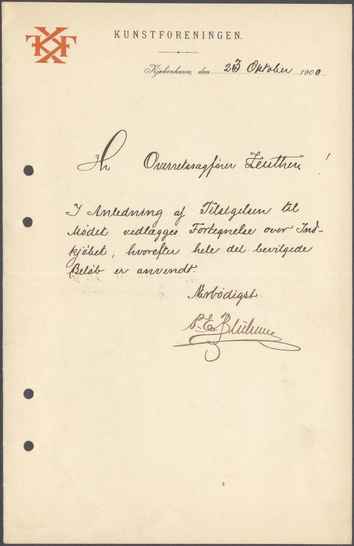 KUNSTFORENINGEN.
Kjøbenhavn, den 23 Oktober 1900.
Hr Overretssagfører Zeuthen!
I Anledning af Tilsigelsen til
Mødet vedlægges Fortegnelse over Ind-
kjøbet, hvorefter hele det bevilgede
Beløb er anvendt
Ærbødigst